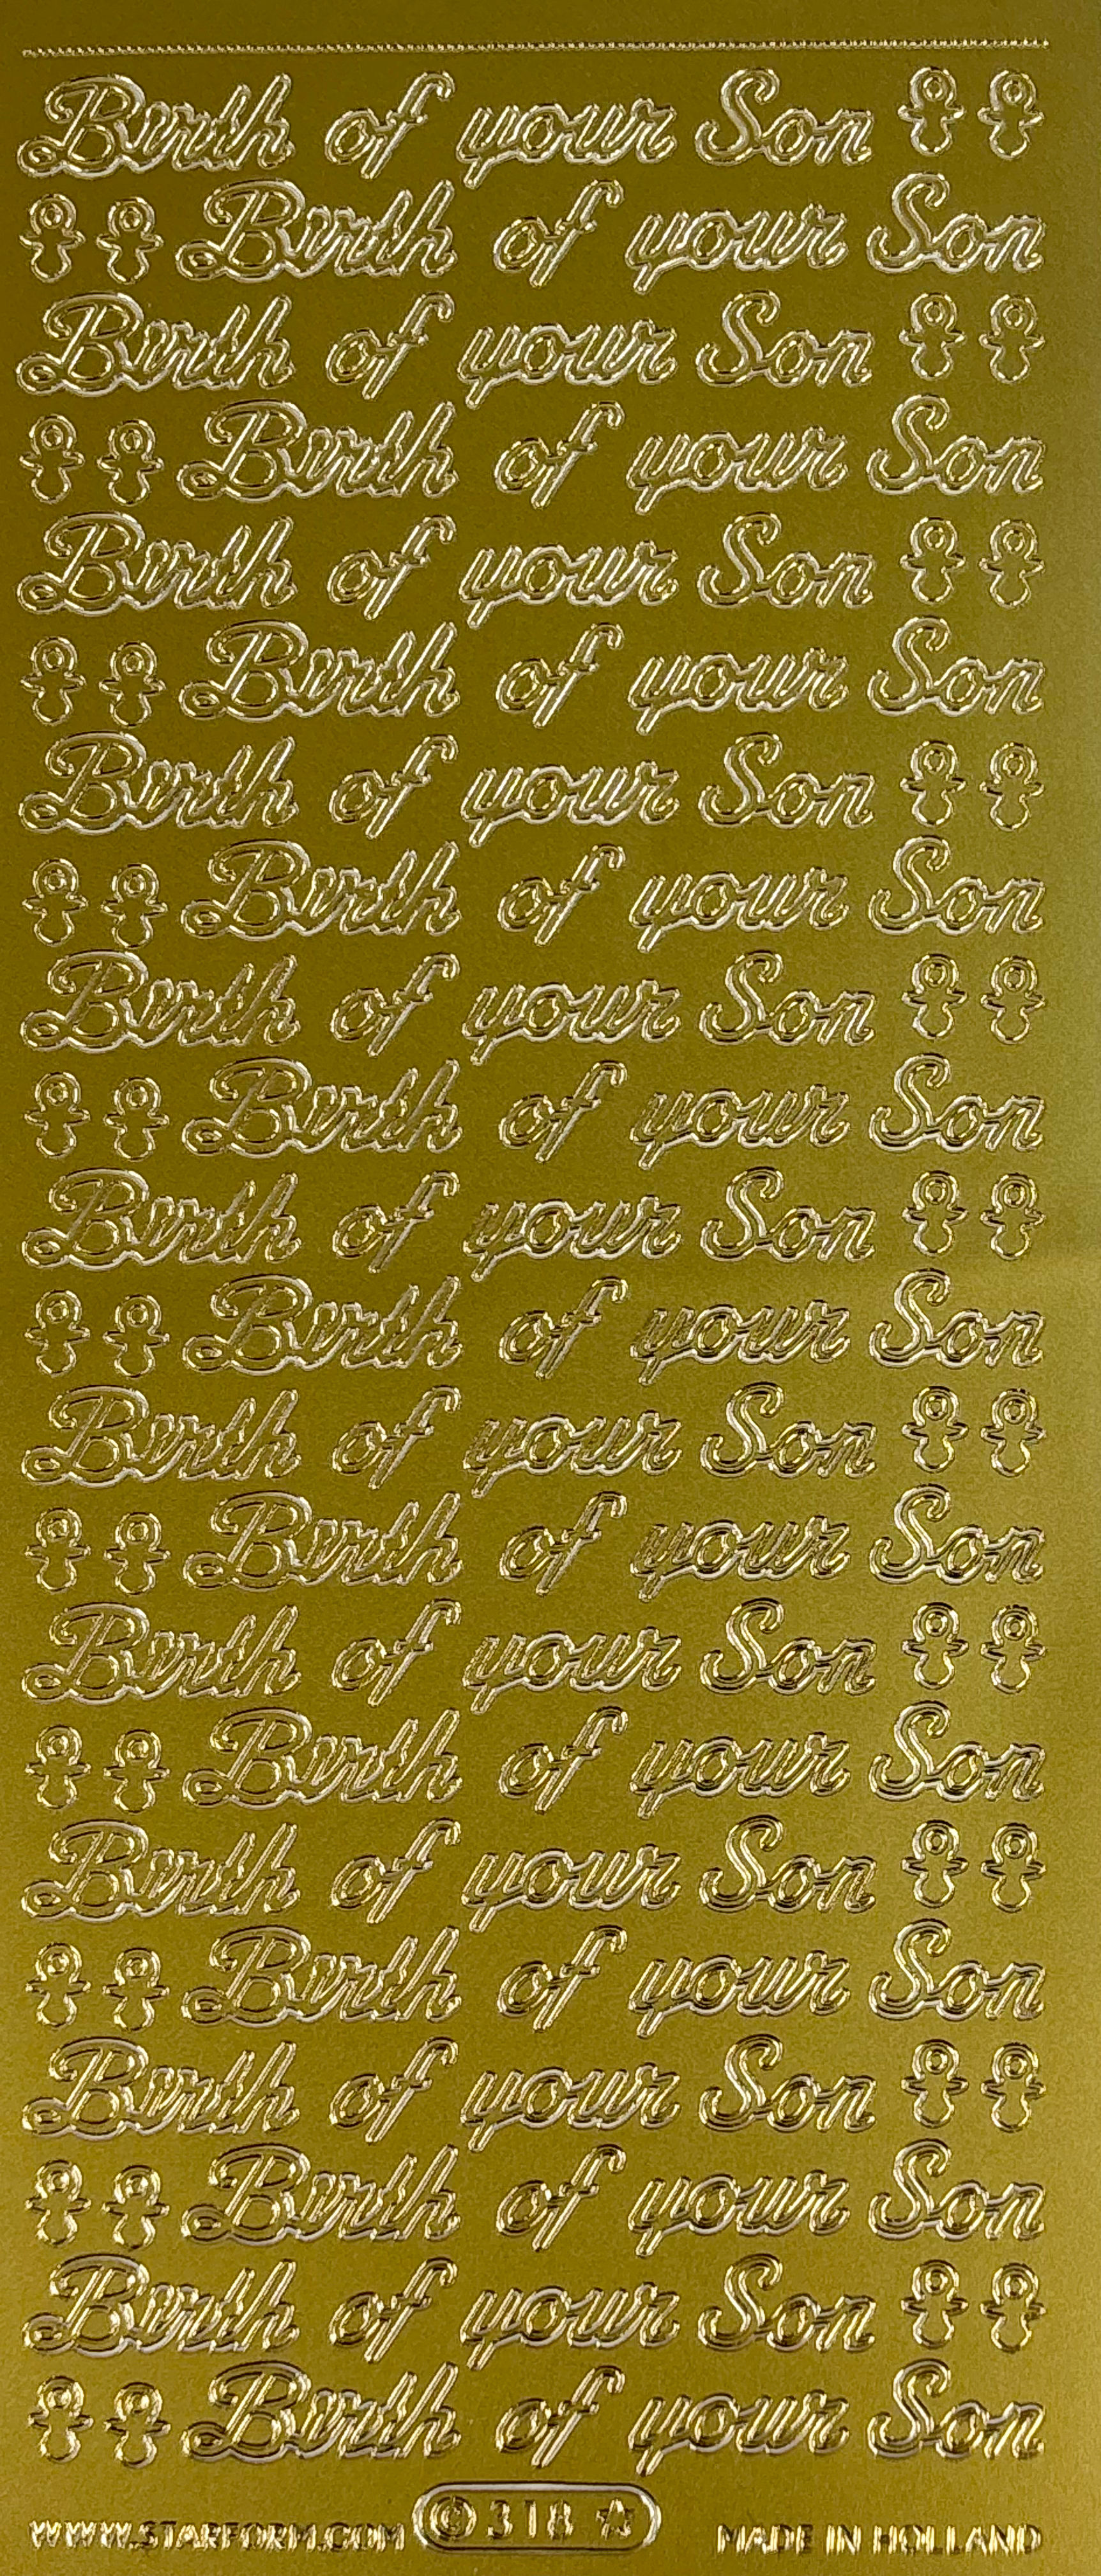 Birth of your Son
Birth of your Son
Birth of your Son
Birth of your Son
Birth of your Son
Birth of your Son
Birth of your Son
Birth of your Son
Birth of your Son
Birth of your Son
Birth of your Son
Birth of your Son
Birth of your Son
Birth of your Son
Birth of your Son
Birth of your Son
Birth of your Son
Birth of your Son
Birth of your Son
Birth of your Son
Birth of your Son
Birth of your Son
WWW.STARFORM.COM © 318 ☆ MADE IN HOLLAND